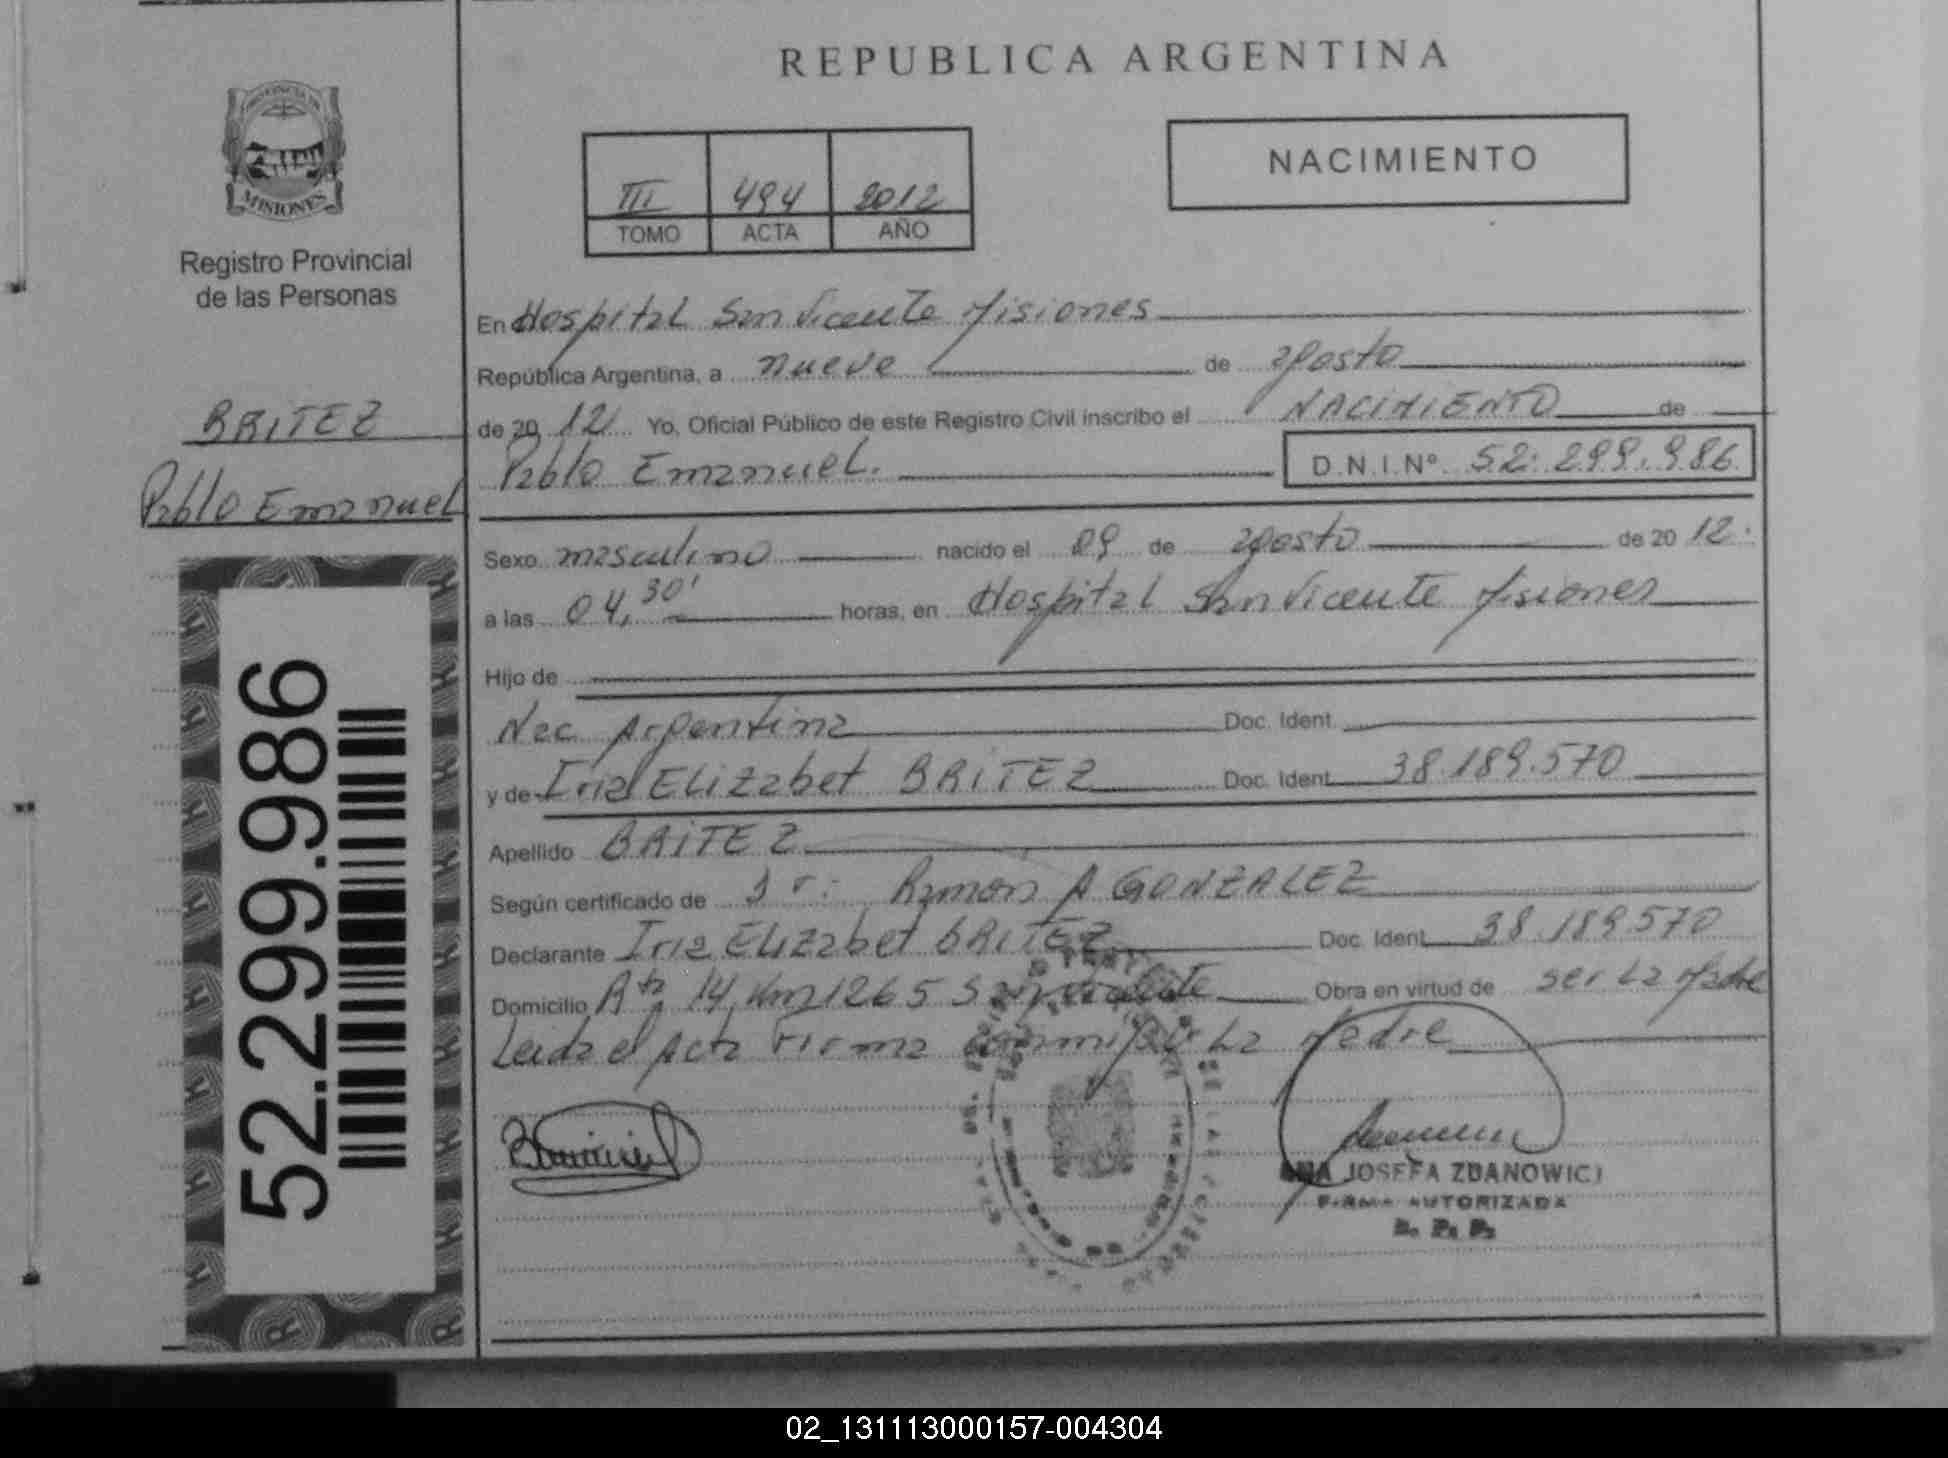 REPUBLICA ARGENTINA
PROVINCIA DE
MISIONES
Registro Provincial
de las Personas
III 494 2012
TOMO ACTA AÑO
NACIMIENTO
BRITEZ
Pablo Emanuel
52.299.986
En Hospital San Vicente Misiones
República Argentina, a nueve de agosto
de 20 12 Yo, Oficial Público de este Registro Civil inscribo el NACIMIENTO de
Pablo Emanuel. D.N.I.Nº 52.299.986
Sexo masculino nacido el 09 de agosto de 20 12.
a las 04,30' horas, en Hospital San Vicente Misiones
Hijo de
Nac Argentina Doc. Ident.
y de Iria Elizabet BRITEZ Doc. Ident. 38.189.570
Apellido BRITEZ
Según certificado de Ramon A GONZALEZ
Declarante Iria Elizabet BRITEZ Doc. Ident. 38.189.570
Domicilio Rta 14 Km 1265 San Vicente Obra en virtud de ser La Madre
Leida el Acta Firma conmigo La Madre
ANA JOSEFA ZDANOWICZ
FIRMA AUTORIZADA
R. P. P.
02_131113000157-004304